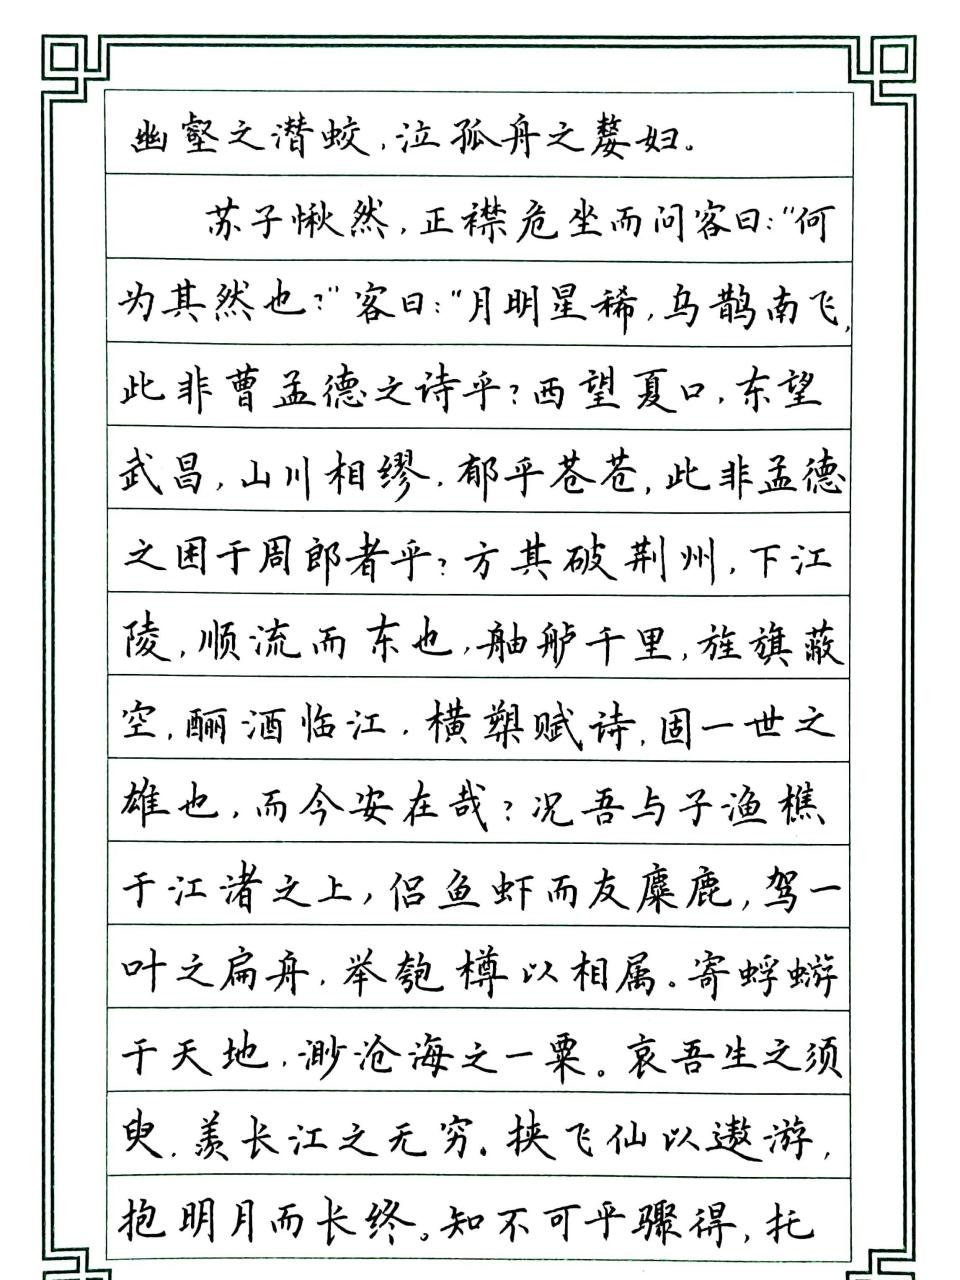 幽壑之潜蛟，泣孤舟之嫠妇。
苏子愀然，正襟危坐而问客曰：“何
为其然也？”客曰：“月明星稀，乌鹊南飞，
此非曹孟德之诗乎？西望夏口，东望
武昌，山川相缪，郁乎苍苍，此非孟德
之困于周郎者乎？方其破荆州，下江
陵，顺流而东也，舳舻千里，旌旗蔽
空，酾酒临江，横槊赋诗，固一世之
雄也，而今安在哉？况吾与子渔樵
于江渚之上，侣鱼虾而友麋鹿，驾一
叶之扁舟，举匏樽以相属。寄蜉蝣
于天地，渺沧海之一粟。哀吾生之须
臾，羡长江之无穷。挟飞仙以遨游，
抱明月而长终。知不可乎骤得，托